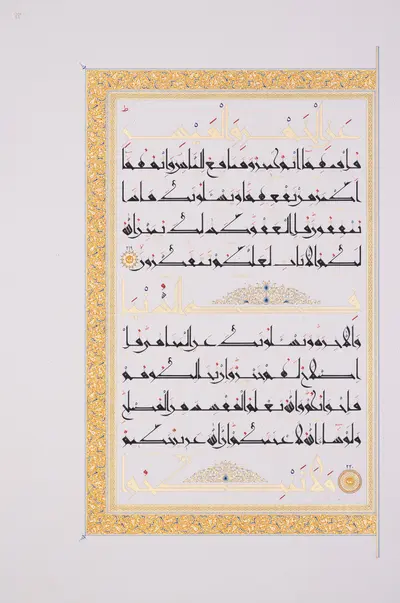 عن الخمر والميسر
قل فيهما إثم كبير ومنافع للناس وإثمهما
أكبر من نفعهما ويسئلونك ماذا
ينفقون قل العفو كذلك يبين الله
لكم الآيات لعلكم تتفكرون ٢١٩
في الدنيا
والآخرة ويسئلونك عن اليتامى قل
إصلاح لهم خير وإن تخالطوهم
فإخوانكم والله يعلم المفسد من المصلح
ولو شاء الله لأعنتكم إن الله عزيز حكيم
٢٢٠ ولا تنكحوا